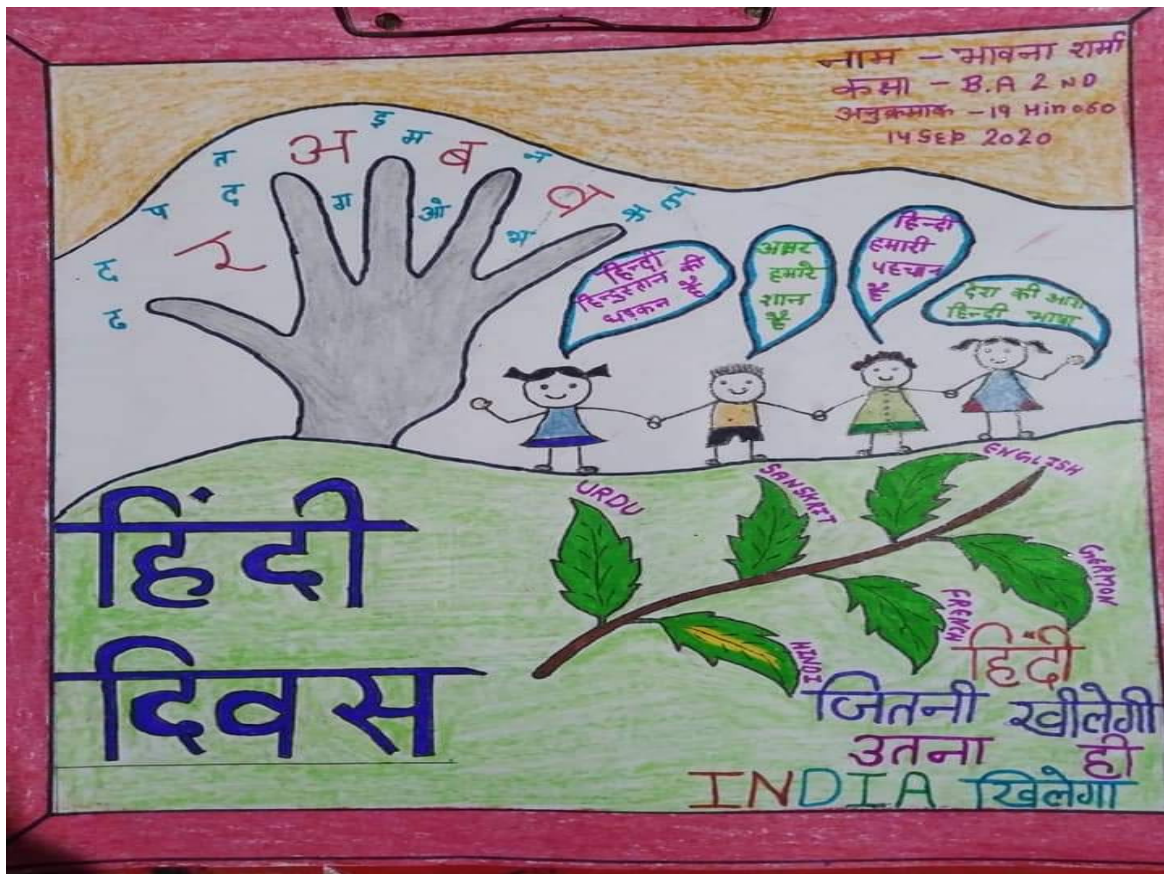 नाम - भावना शर्मा
कक्षा - B.A 2ND
अनुक्रमांक - 19 Hin 060
14 SEP 2020
इ
अ म ब न
त
द ग ओ व
प क
र भ
द
ढ
हिन्दी
हिन्दुस्तान की
धड़कन है
अक्षर
हमारे
शान
है
हिन्दी
हमारी
पहचान
है
देश की आशा
हिन्दी भाषा
हिंदी
दिवस
URDU
SANSKRIT
ENGLISH
GERMON
FRENCH
HINDI
हिंदी
जितनी खीलेगी
उतना ही
INDIA खिलेगा